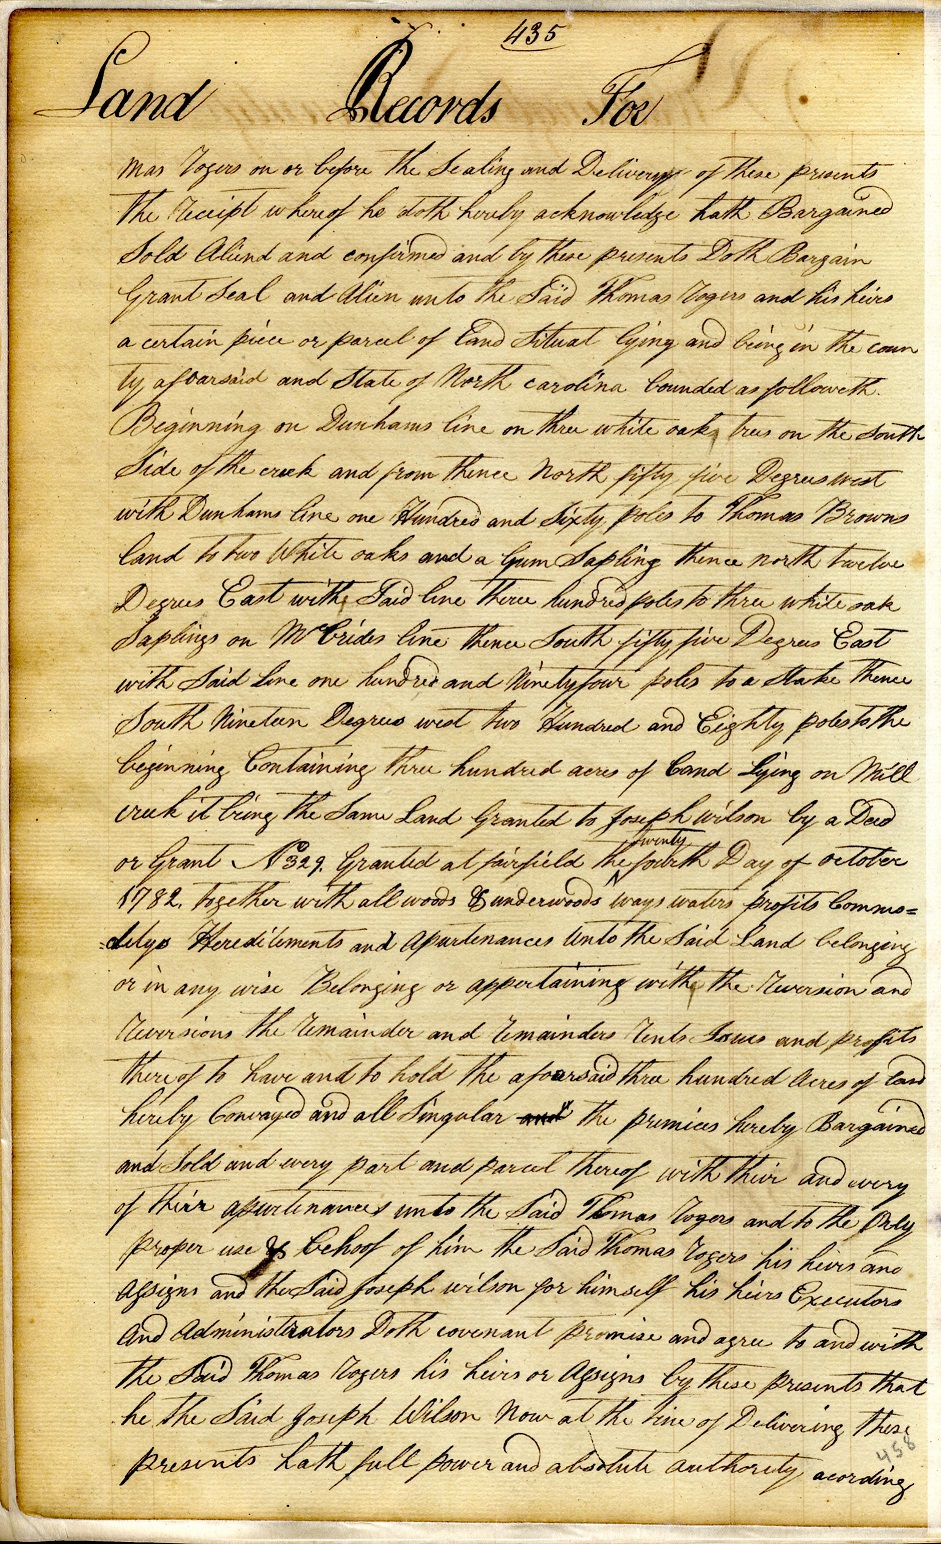 435
Land Records For
mas Rogers on or before the Sealing and Delivery of these presents
the receipt whereof he doth hereby acknowledge hath Bargained
Sold Aliend and confirmed and by these presents Doth Bargain
Grant Seal and Alien unto the Said Thomas Rogers and his heirs
a certain piece or parcel of Land Situat lying and being in the coun
ty afoarsaid and State of North carolina bounded as followeth.
Beginning on Dunhams line on three white oak trees on the South
Side of the creek and from thence North fifty five Degrees west
with Dunhams line one Hundred and Sixty poles to Thomas Browns
land to two White oaks and a Gum Sapling thence north twelve
Degrees East with Said line three hundred poles to three white oak
Saplings on McBrides line thence South fifty five Degrees East
with Said Line one hundred and Ninety four poles to a Stake thence
South Nineteen Degrees west two Hundred and Eighty poles to the
beginning Containing three hundred acres of Land Lying on Mill
creek it being the Same Land Granted to Joseph wilson by a Deed
or Grant No 329. Granted at fairfield the twenty fourth Day of october
1782, together with all woods & underwoods ways waters profits Commo=
=ditys Hereditements and Apurtenances Unto the Said Land belonging
or in any wise Belonging or appertaining with the Reversion and
Reversions the Remainder and Remainders Rents Isues and profits
thereof to have and to hold the afoarsaid three hundred Acres of Land
hereby Convayed and all Singular and the premices hereby Bargained
and Sold and every part and parcel thereof with their and every
of their apurtenances unto the Said Thomas Rogers and to the Only
proper use & behoof of him the Said Thomas Rogers his heirs and
Assigns and the Said Joseph wilson for himself his heirs Executors
And Administrators Doth covenant promise and agree to and with
the Said Thomas Rogers his heirs or Assigns by these presents that
he the Said Joseph Wilson Now at the time of Delivering these
presents hath full power and absolute authority acording
458